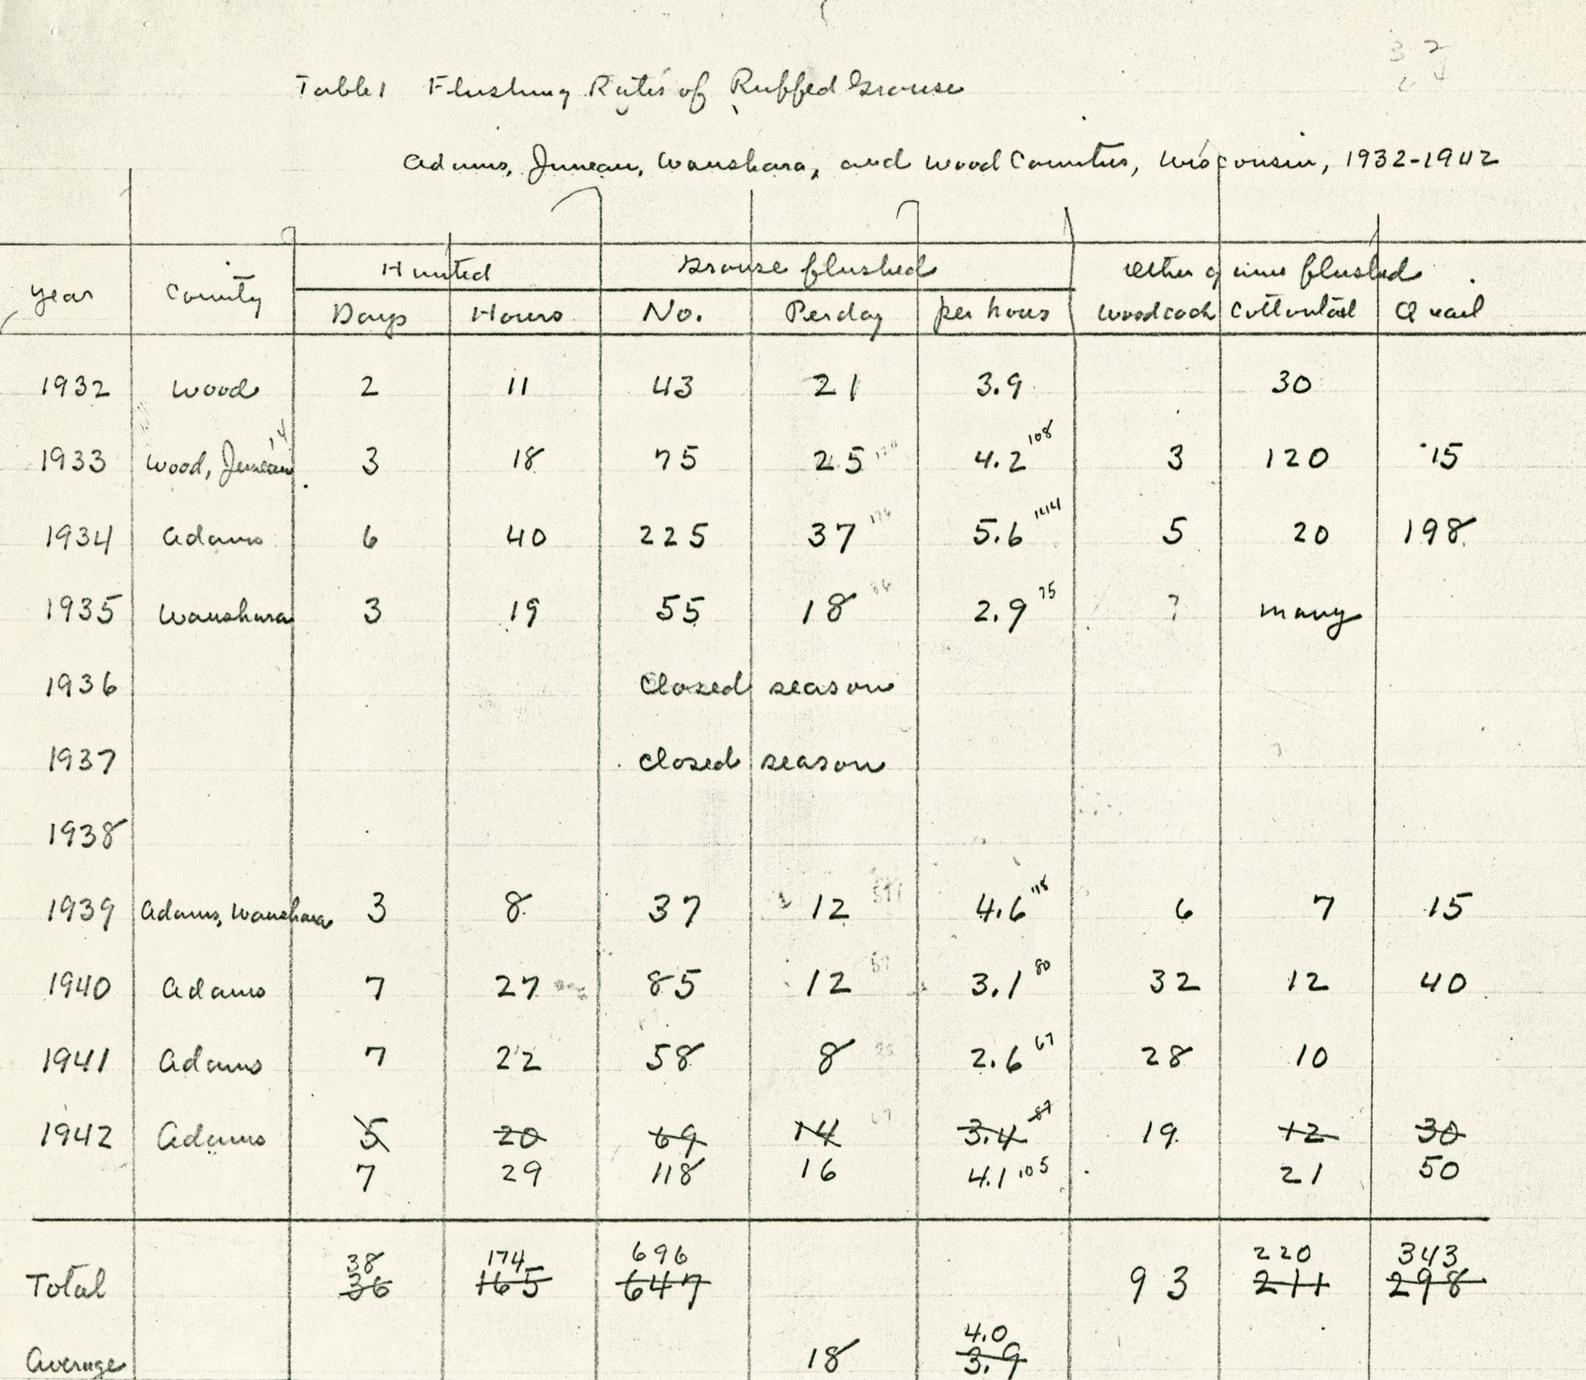 Table 1 Flushing Rates of Ruffed Grouse
Adams, Juneau, Waushara, and Wood Counties, Wisconsin, 1932-1942
Year County Hunted Grouse flushed Other game flushed
Days Hours No. Per day per hour Woodcock Cottontail Quail
1932 Wood 2 11 43 21 3.9 30
1933 Wood, Juneau 3 18 75 25 4.2 108 3 120 15
1934 Adams 6 40 225 37 5.6 144 5 20 198
1935 Waushara 3 19 55 18 2.9 75 ? many
1936 Closed season
1937 Closed season
1938
1939 Adams, Waushara 3 8 37 12 4.6 118 6 7 15
1940 Adams 7 27 85 12 3.1 80 32 12 40
1941 Adams 7 22 58 8 2.6 67 28 10
1942 Adams 5 20 69 14 3.4 87 19 12 30
7 29 118 16 4.1 105 21 50
38 174 696 220 343
Total 36 165 647 93 211 298
4.0
Average 18 3.9